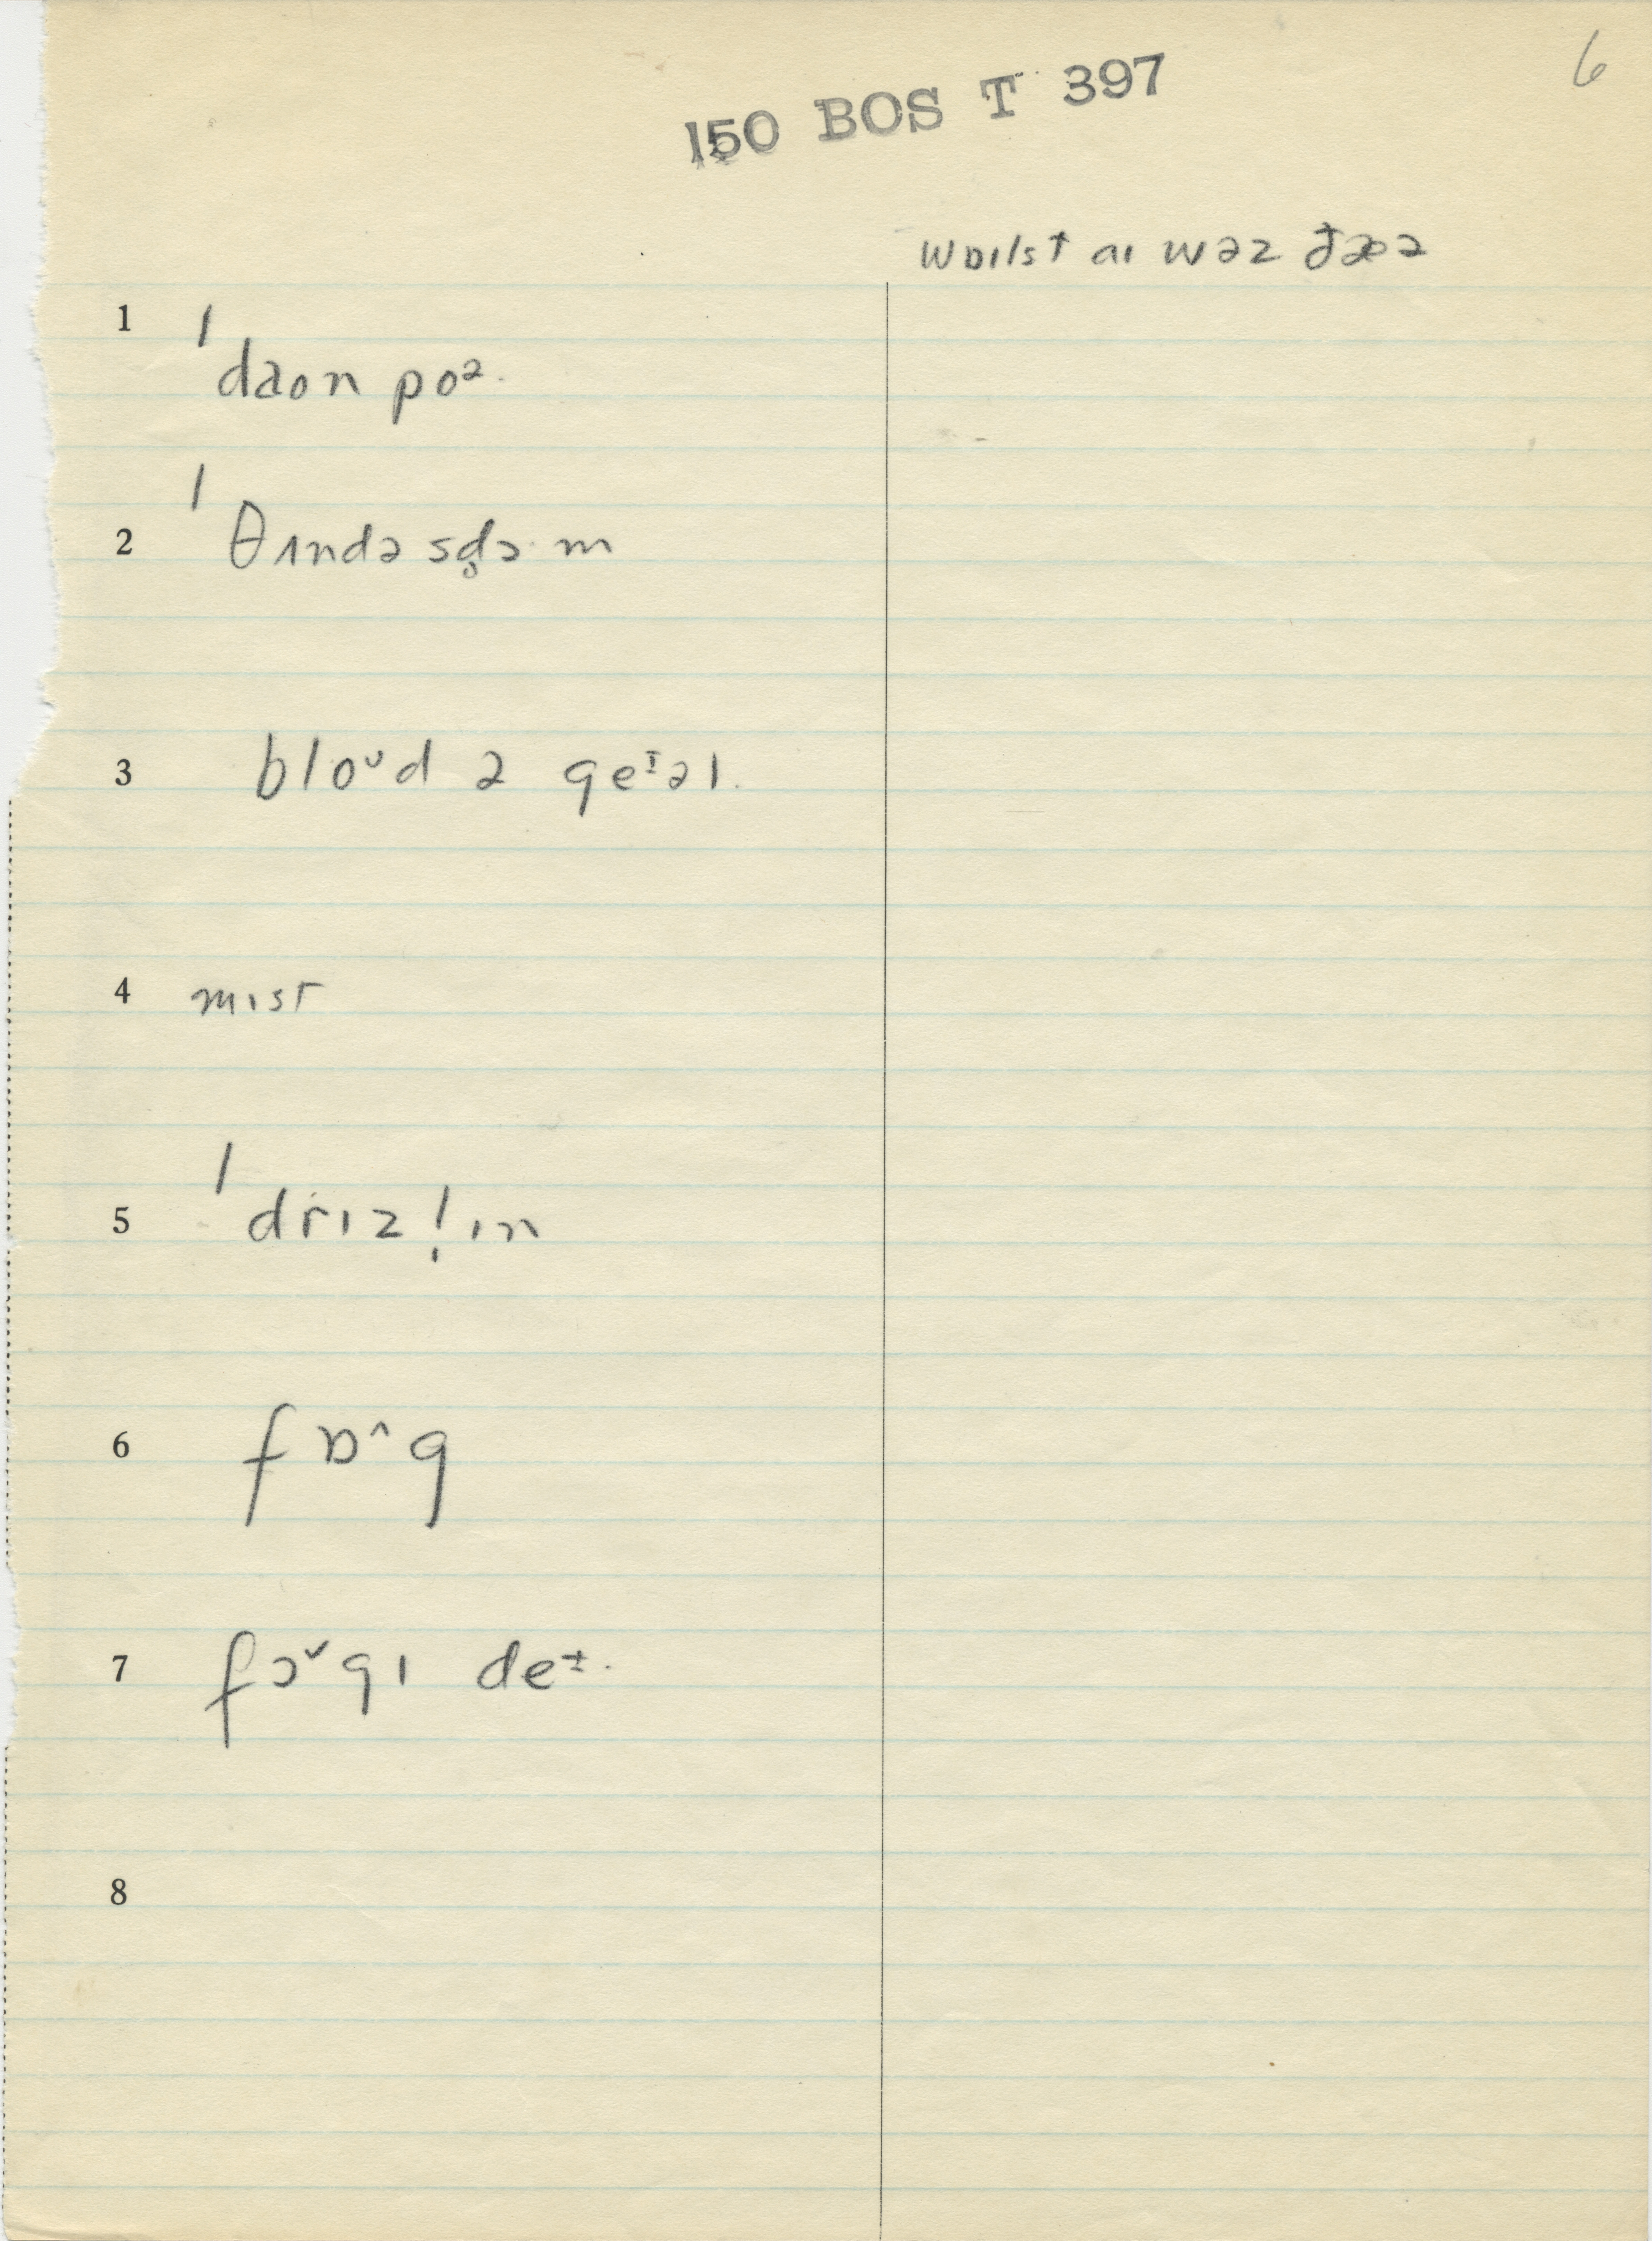 6
150 BOS T 397
wɒɪlst aɪ wəz ðæə
1 ˈdaon poᵊ.
2 ˈθʌndə sd̥ɔ·m
3 bloᵁd ə geᶦəl.
4 mɪst
5 ˈdrɪzl̩ɪn
6 fɒ^g
7 fɔˇgɪ deᶧ.
8